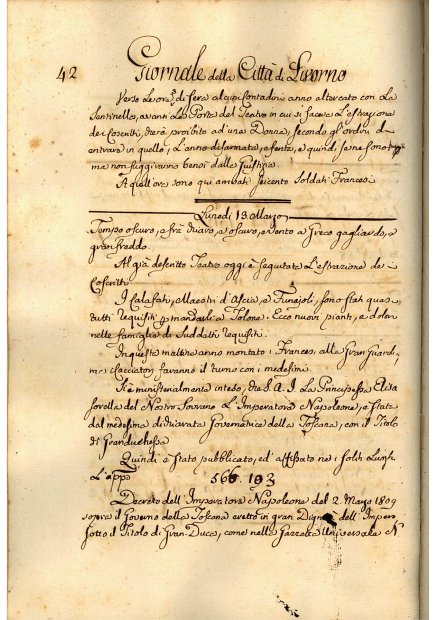 42
Giornale della Città di Livorno
Verso le ore di sera alcuni Contadini anno altercato con La
Sentinella, avanti Le Porte del Teatro in cui si faceva L'estrazione
de Coscritti, era proibito ad una Donna, secondo gl'ordini d
entrare in quello, L'anno disarmata, e ferita, e quindi se ne sono
ma non fuggiranno bensì dalla Giustizia.
A quell'ore sono qui arrivati seicento Soldati Francesi.
Lunedì 13. Marzo
Tempo oscuro, e frà chiaro, e oscuro, e vento a Greco gagliardo, e
gran freddo.
Al già descritto Teatro oggi è seguitata L'estrazione de
Coscritti.
I Calafati, e Maestri d'Ascia, e Funajoli, sono stati quasi
tutti requisiti p mandarli a Tolone. Ecco nuovi pianti, e dolori
nelle famiglie di Suddetti requisiti.
In questa mattina anno montato i Francesi alla Gran Guardi
mi Cacciatori faranno il turno con i medesimi.
Si è ministerialmente inteso, che S. A. I. La Principessa Elisa
sorella del Nostro Sovrano L'Imperatore Napoleone, è stata
dal medesimo dichiarata Governatrice della Toscana, con il Titolo
di Granduchessa
Quindi è stato pubblicato, ed affissato ne i soliti Luoghi
L'app
566. 193
Decreto dell'Imperatore Napoleone del 2. Marzo 1809
sopra il Governo della Toscana eretto in gran Dignità dell'Imper
sotto il Titolo di Gran-Duca, come nella Gazzetta Universale N